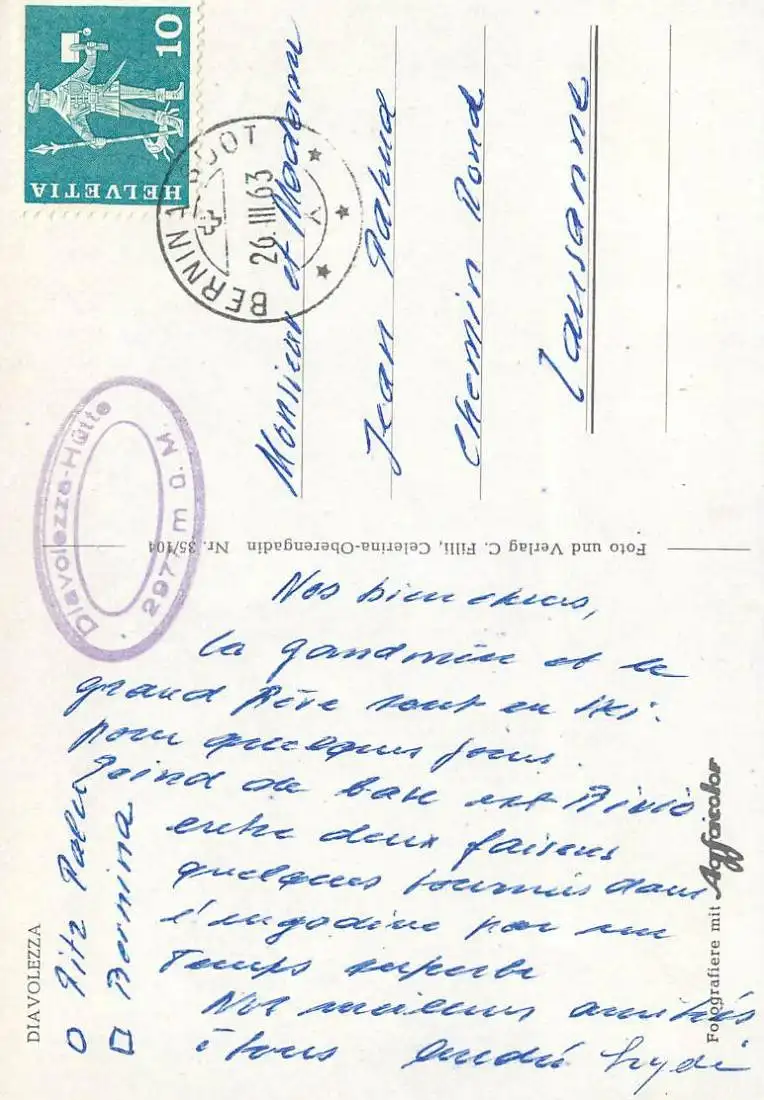 HELVETIA
10
BERNINA-SUOT
26.III.63
Diavolezza-Hütte
2977 m ü. M
Monsieur et Madame
Jean Pahud
Chemin Rond
Lausanne
Foto und Verlag C. Filli, Celerina-Oberengadin Nr. 35/104
Nos bien chers,
la grand mère et le
grand Père sont en ski.
pour quelques jours.
Point de base est Bivio
entre deux faisons
quelques tournées dans
l'engadine par un
temps superbe
Nos meilleurs amitiés
à tous André Lydi
DIAVOLEZZA
O Pitz Palu
□ Bernina
Fotografiere mit Agfacolor